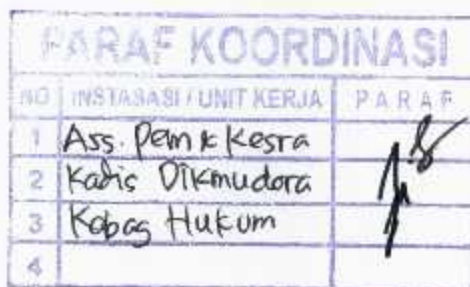 PARAF KOORDINASI
NO INSTASASI / UNIT KERJA PARAF
1 Ass. Pem & Kesra
2 Kadis Dikmudora
3 Kabag Hukum
4